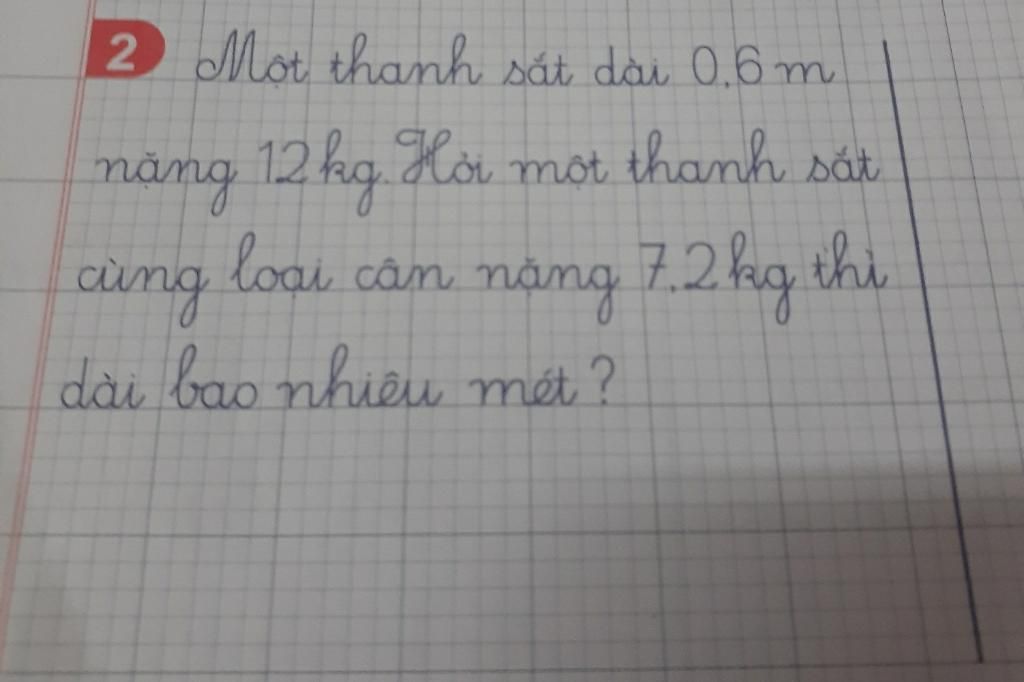 2 Một thanh sắt dài 0.6 m
nặng 12 kg. Hỏi một thanh sắt
cùng loại cân nặng 7.2 kg thì
dài bao nhiêu mét?